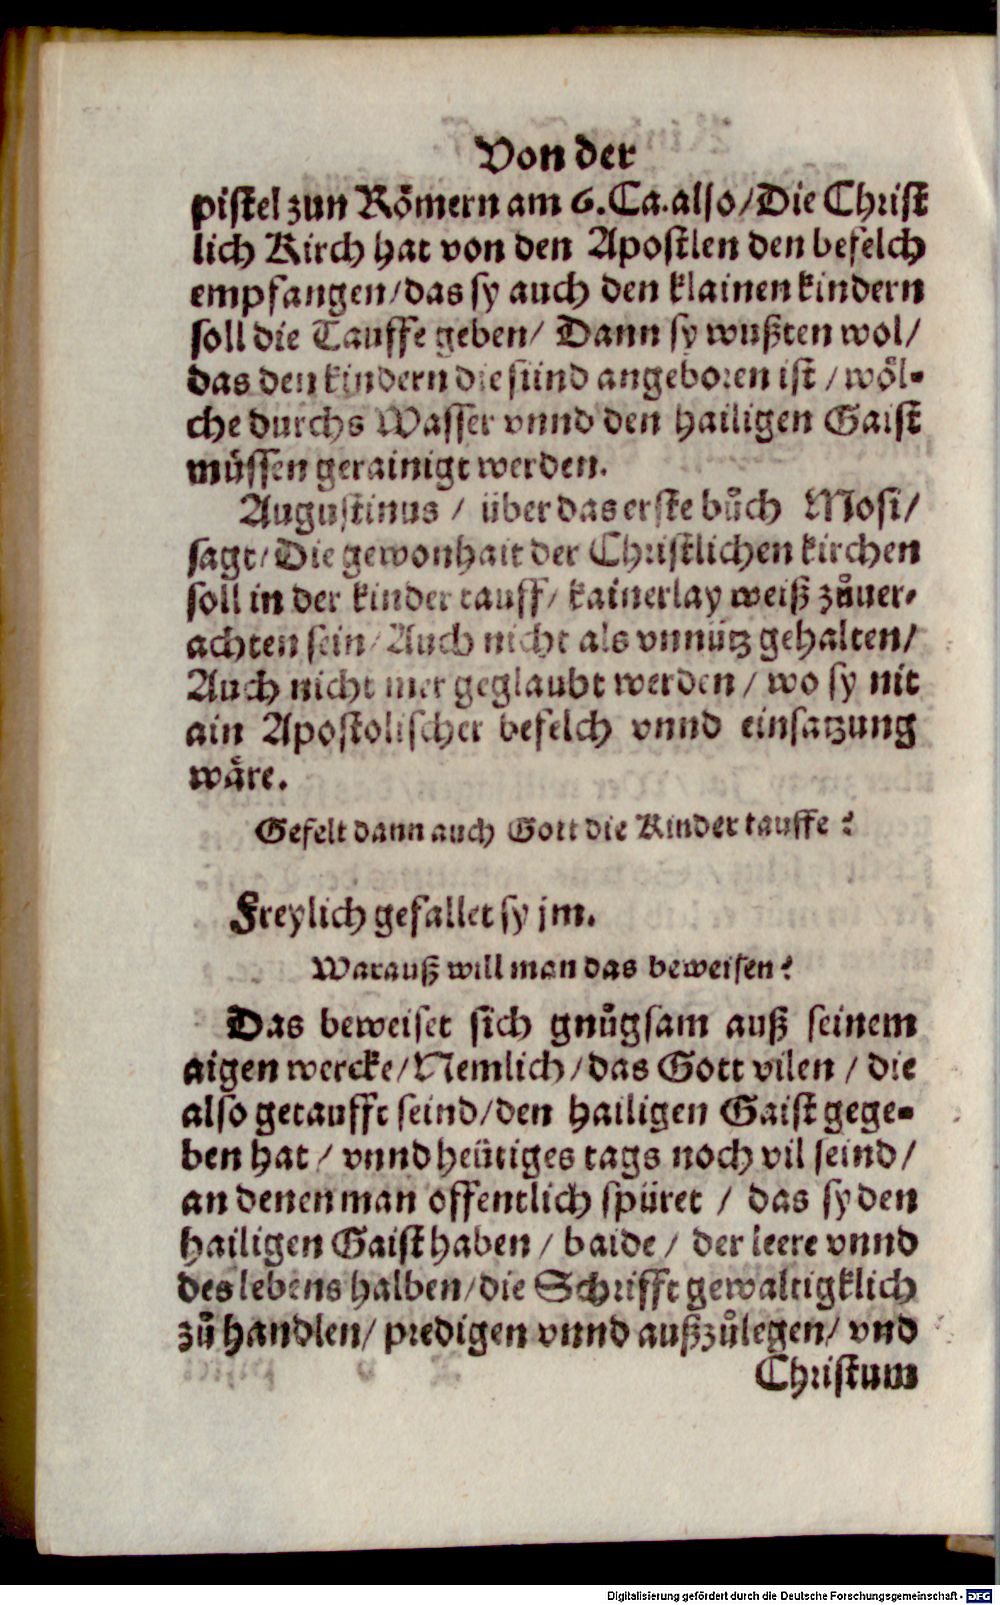 Von der
pistel zun Römern am 6. Ca. also / Die Christ
lich Kirch hat von den Apostlen den befelch
empfangen / das sy auch den klainen kindern
soll die Tauffe geben / Dann sy wußten wol /
das den kindern die sünd angeboren ist / wöl-
che durchs Wasser vnnd den hailigen Gaist
müssen gerainigt werden.
Augustinus / über das erste bůch Mosi /
sagt / Die gewonhait der Christlichen kirchen
soll in der kinder tauff / kainerlay weiß zůuer-
achten sein / Auch nicht als vnnütz gehalten /
Auch nicht mer geglaubt werden / wo sy nit
ain Apostolischer befelch vnnd einsatzung
wäre.
Gefelt dann auch Gott die Kinder tauffe?
Freylich gefallet sy jm.
Warauß will man das beweisen?
Das beweiset sich gnůgsam auß seinem
aigen wercke / Nemlich / das Gott vilen / die
also getaufft seind / den hailigen Gaist gege-
ben hat / vnnd heütiges tags noch vil seind /
an denen man offentlich spüret / das sy den
hailigen Gaist haben / baide / der leere vnnd
des lebens halben / die Schrifft gewaltigklich
zů handlen / predigen vnnd außzůlegen / vnd
Christum
Digitalisierung gefördert durch die Deutsche Forschungsgemeinschaft - DFG